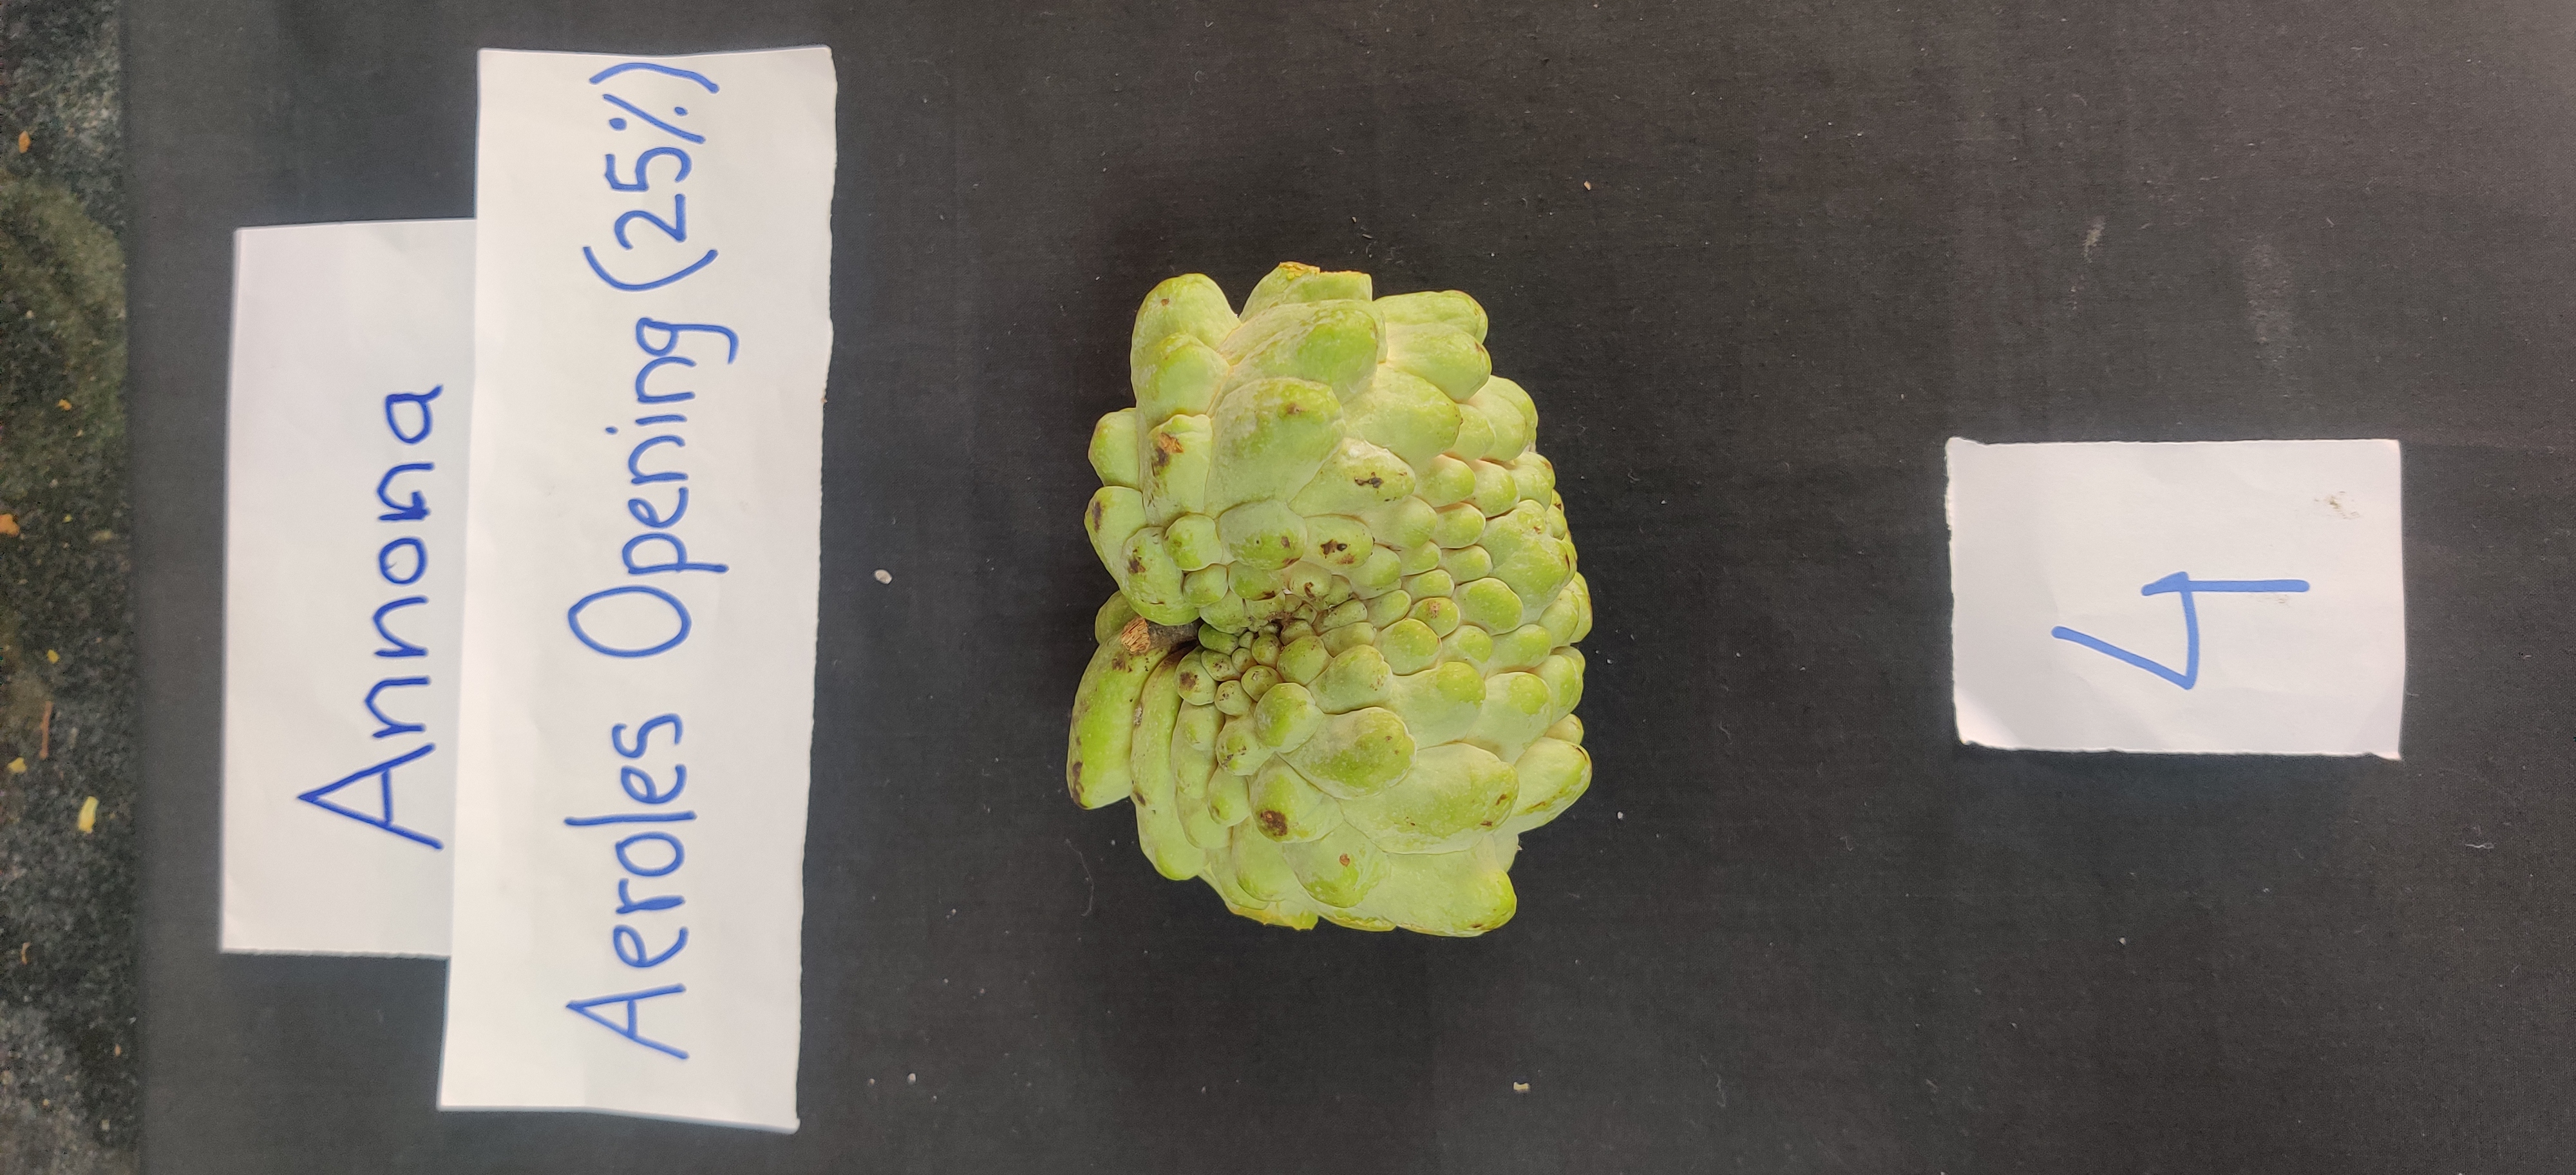 Annona
Aeroles Opening (25%)
4